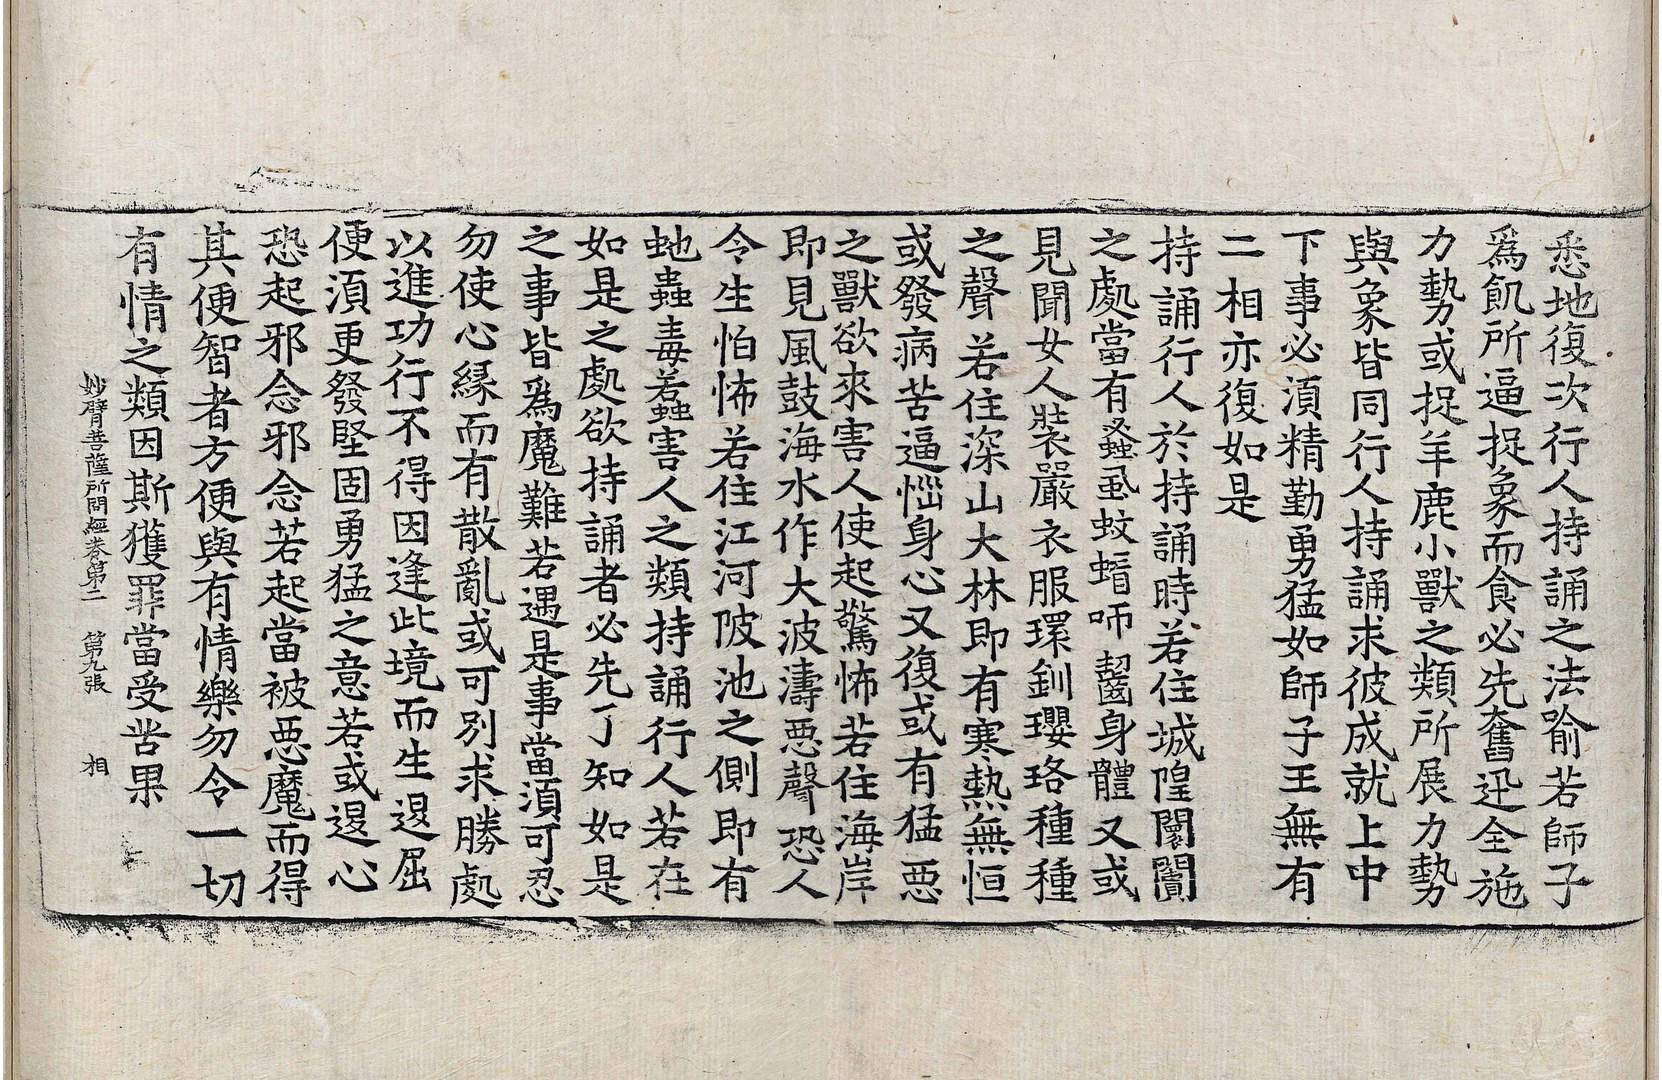 悉地復次行人持誦之法喻若師子
爲飢所逼捉象而食必先奮迅全施
力勢或捉羊鹿小獸之類所展力勢
與象皆同行人持誦求彼成就上中
下事必湏精勤勇猛如師子王無有
二相亦復如是
持誦行人於持誦時若住城隍闤闠
之處當有蚤虱蚊蝱咂齧身體又或
見聞女人裝嚴衣服環釧瓔珞種種
之聲若住深山大林即有寒熱無恒
或發病苦逼惱身心又復或有猛惡
之獸欲來害人使起驚怖若住海岸
即見風鼓海水作大波濤惡聲恐人
令生怕怖若住江河陂池之側即有
虵蟲毒若䖝害人之類持誦行人若在
如是之處欲持誦者必先了知如是
之事皆爲魔難若遇是事當湏可忍
勿使心緣而有散亂或可別求勝處
以進功行不得因逢此境而生退屈
便湏更發堅固勇猛之意若或退心
恐起邪念邪念若起當被惡魔而得
其便智者方便與有情樂勿令一切
有情之類因斯獲罪當受苦果
妙臂菩薩所問經卷第二 第九張 相